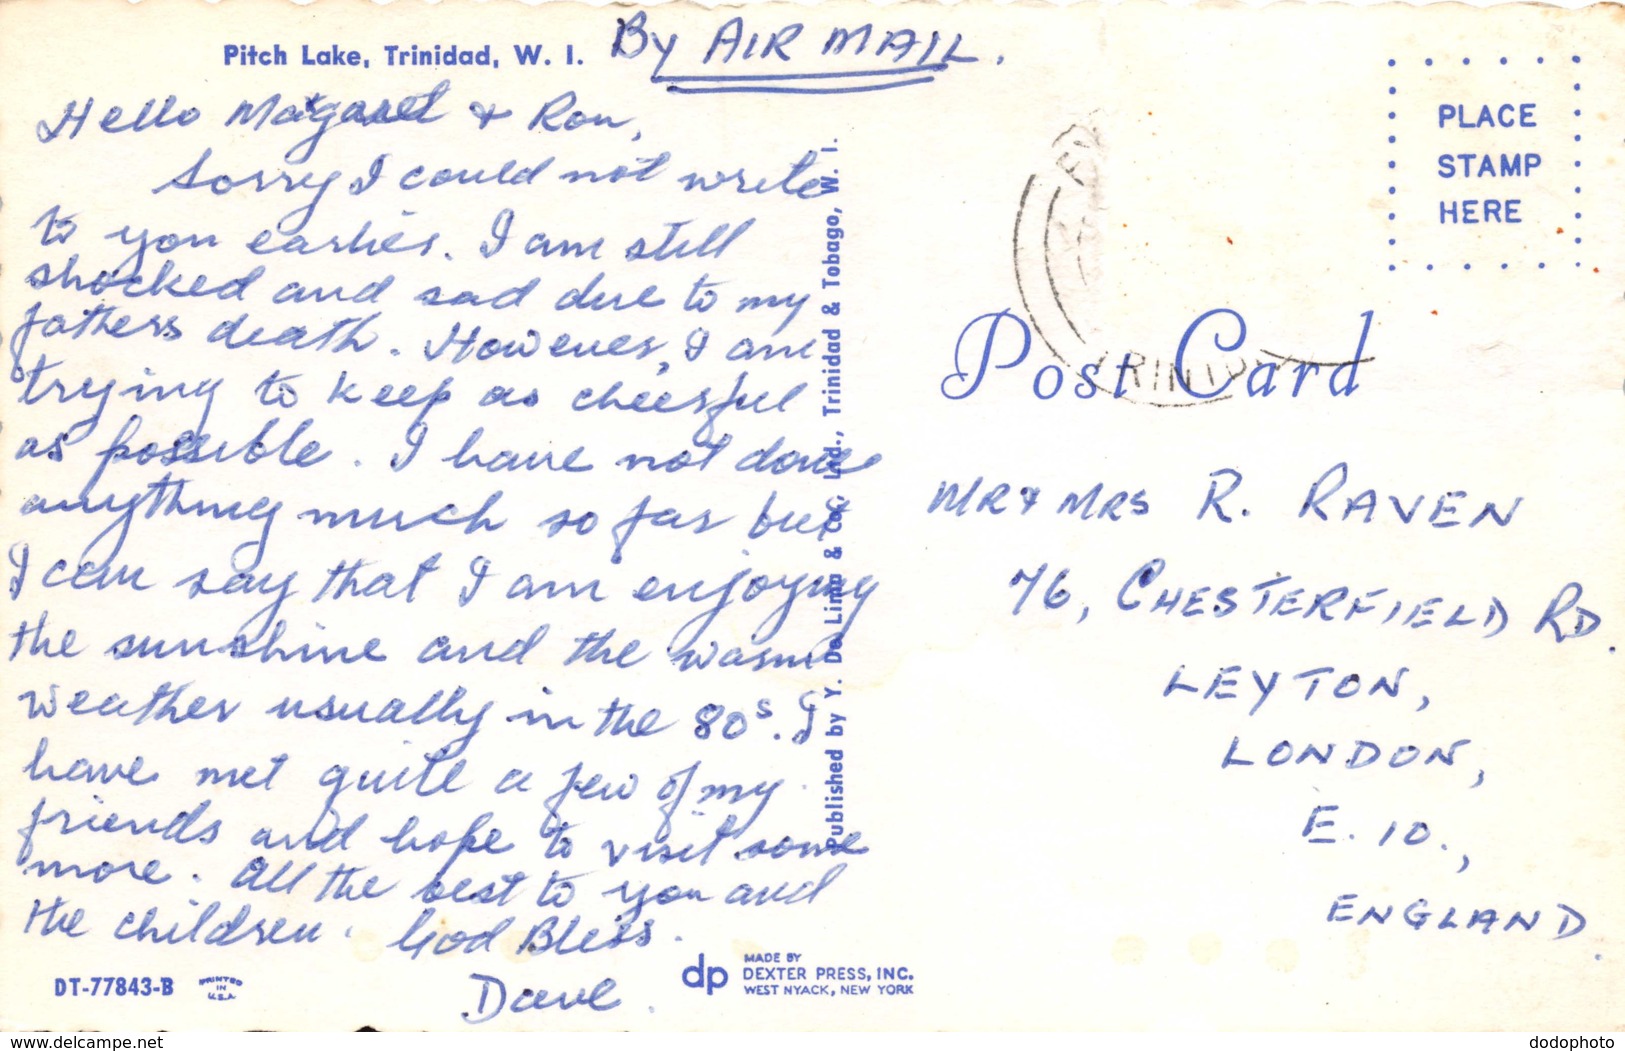 Pitch Lake, Trinidad, W. I.
By AIR MAIL.
Hello Magaret & Ron,
Sorry I could not write
to you earlier. I am still
shocked and sad due to my
fathers death. However, I am
trying to keep as cheerful
as possible. I have not done
anything much so far but
I can say that I am enjoying
the sunshine and the warm
weather usually in the 80s. I
have met quite a few of my
friends and hope to visit some
more. All the best to you and
the children. God Bless.
Dave.
DT-77843-B
PRINTED
IN
U.S.A.
dp
MADE BY
DEXTER PRESS, INC.
WEST NYACK, NEW YORK
Published by Y. De Lima & Co., Ltd., Trinidad & Tobago, W. I.
PLACE
STAMP
HERE
TRINIDAD
Post Card
MR & MRS R. RAVEN
76, CHESTERFIELD RD.
LEYTON,
LONDON,
E. 10.,
ENGLAND.
www.delcampe.net
dodophoto